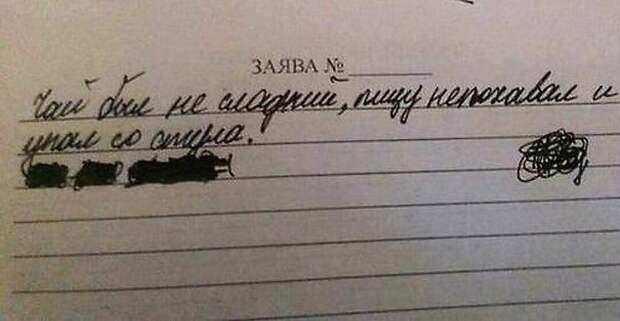 ЗАЯВА № ________
Чай был не сладкий, пищу непохавал и
упал со стула.